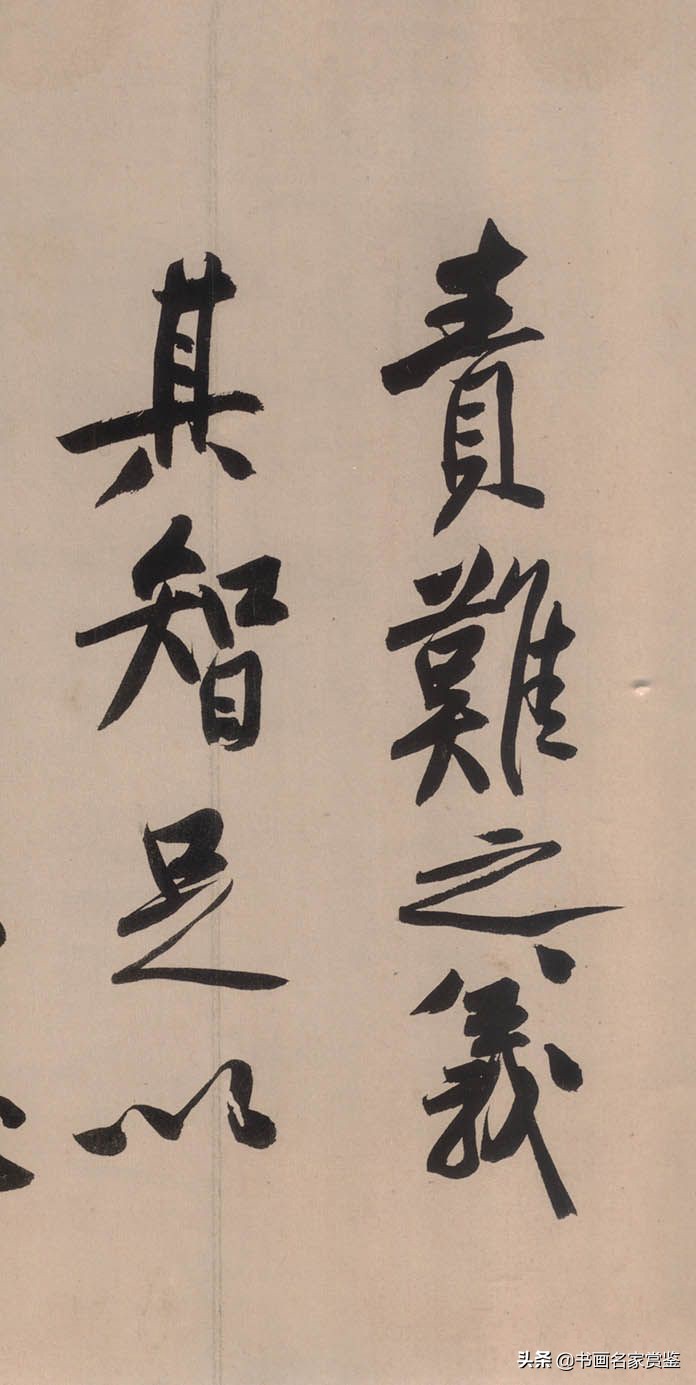 責難之義
其智足以
头条 @书画名家赏鉴